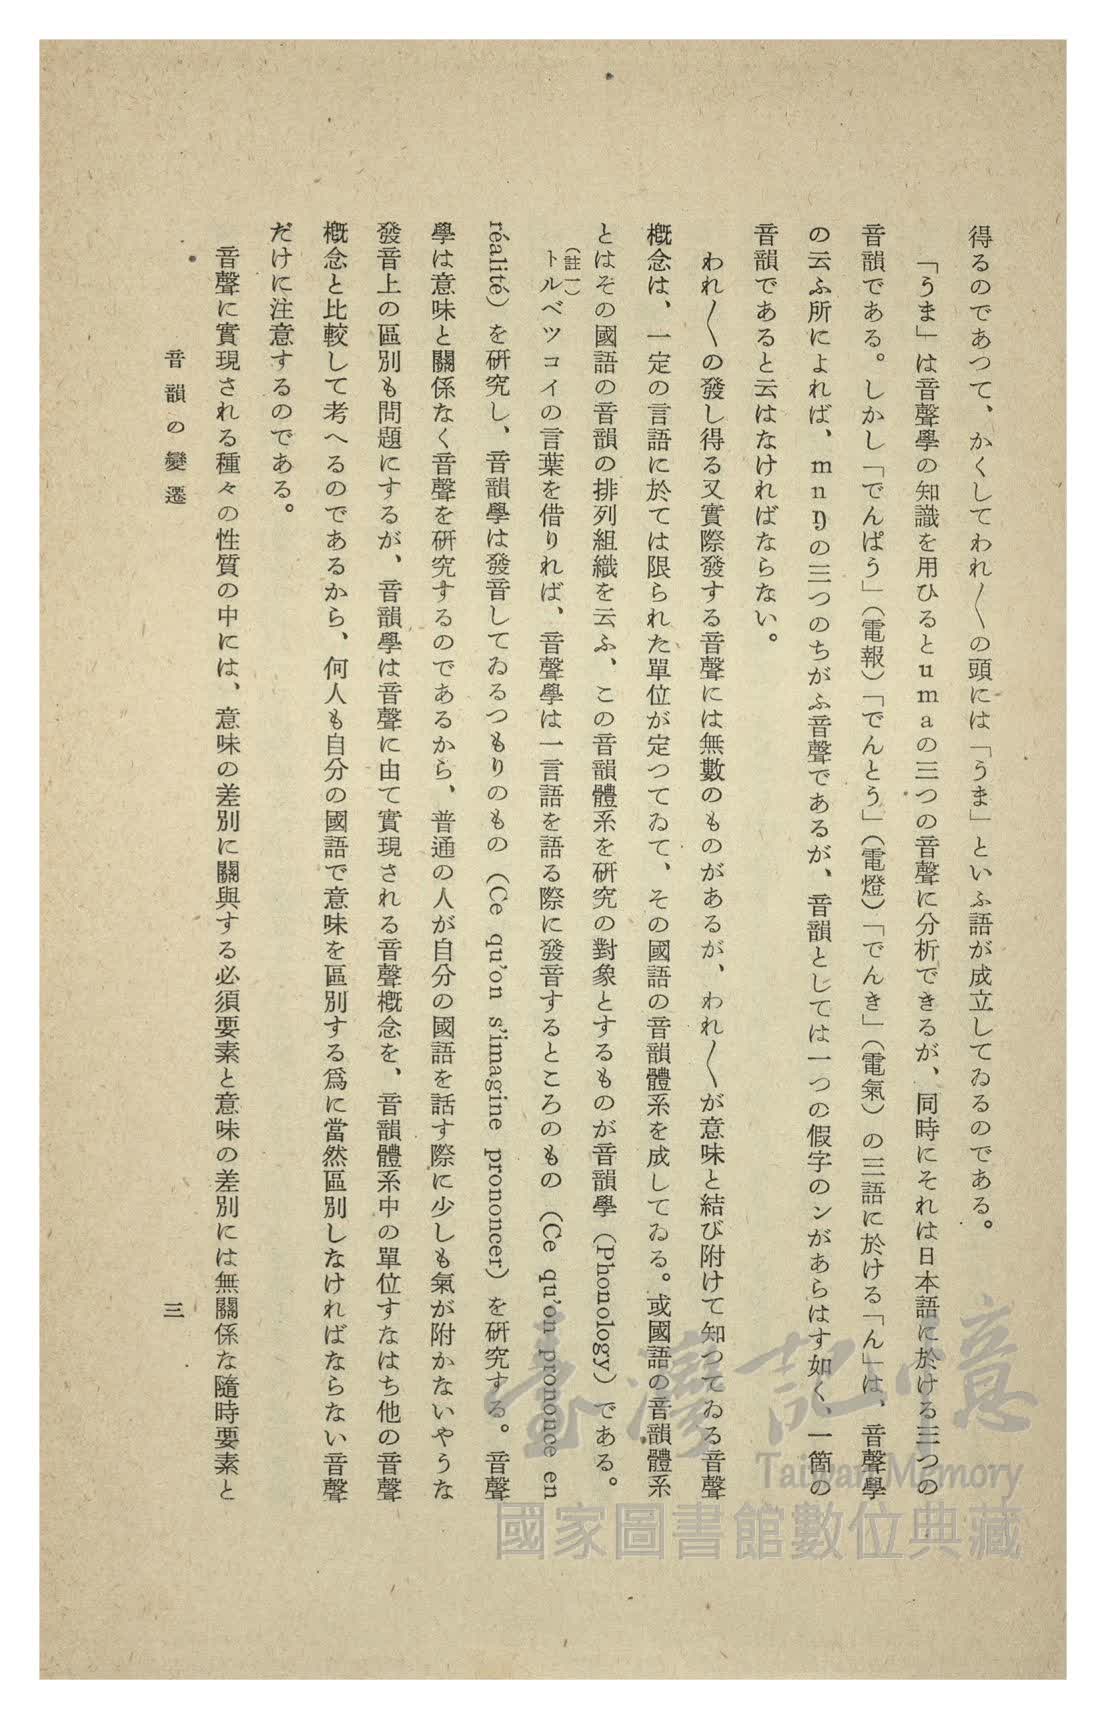 得るのであつて、かくしてわれ〳〵の頭には「うま」といふ語が成立してゐるのである。
「うま」は音聲學の知識を用ひるとumaの三つの音聲に分析できるが、同時にそれは日本語に於ける三つの
音韻である。しかし「でんぱう」（電報）「でんとう」（電燈）「でんき」（電氣）の三語に於ける「ん」は、音聲學
の云ふ所によれば、mnŋの三つのちがふ音聲であるが、音韻としては一つの假字のンがあらはす如く、一箇の
音韻であると云はなければならない。
われ〳〵の發し得る又實際發する音聲には無數のものがあるが、われ〳〵が意味と結び附けて知つてゐる音聲
概念は、一定の言語に於ては限られた單位が定つてゐて、その國語の音韻體系を成してゐる。或國語の音韻體系
とはその國語の音韻の排列組織を云ふ、この音韻體系を研究の對象とするものが音韻學（Phonology）である。
（註一）
トルベツコイの言葉を借りれば、音聲學は一言語を語る際に發音するところのもの（Ce qu'on prononce en
réalité）を研究し、音韻學は發音してゐるつもりのもの（Ce qu'on s'imagine prononcer）を研究する。音聲
學は意味と關係なく音聲を研究するのであるから、普通の人が自分の國語を話す際に少しも氣が附かないやうな
發音上の區別も問題にするが、音韻學は音聲に由て實現される音聲概念を、音韻體系中の單位すなはち他の音聲
概念と比較して考へるのであるから、何人も自分の國語で意味を區別する爲に當然區別しなければならない音聲
だけに注意するのである。
音聲に實現される種々の性質の中には、意味の差別に關與する必須要素と意味の差別には無關係な隨時要素と
音韻の變遷
三
臺灣記憶
Taiwan Memory
國家圖書館數位典藏